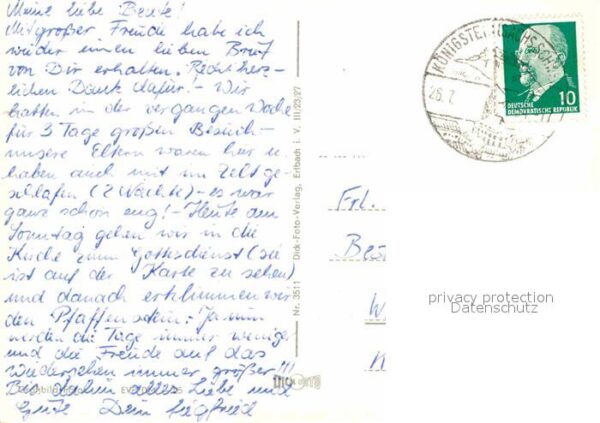 Meine liebe Beate!
Mit großer Freude habe ich
wieder einen lieben Brief
von Dir erhalten. Recht herz-
lichen Dank dafür! - Wir
hatten in der vergangen Woche
für 3 Tage großen Besuch -
unsere Eltern waren hier u.
haben auch mit im Zelt ge-
schlafen (2 Nächte) - es war
ganz schön eng! - Heute am
Sonntag gehen wir in die
Kirche zum Gottesdienst (sie
ist auf der Karte zu sehen)
und danach erklimmen wir
den Pfaffenstein. Ja nun
werden die Tage immer weniger
und die Freude auf das
Wiedersehen immer größer!!!
Bis dahin alles Liebe und
Gute Dein Siegfried
Nr. 3511 Dick-Foto-Verlag, Erlbach i. V. III/23/27
KÖNIGSTEIN (SÄCHS
26.7.
10
DEUTSCHE
DEMOKRATISCHE REPUBLIK
Frl.
Be
W
privacy protection
Datenschutz